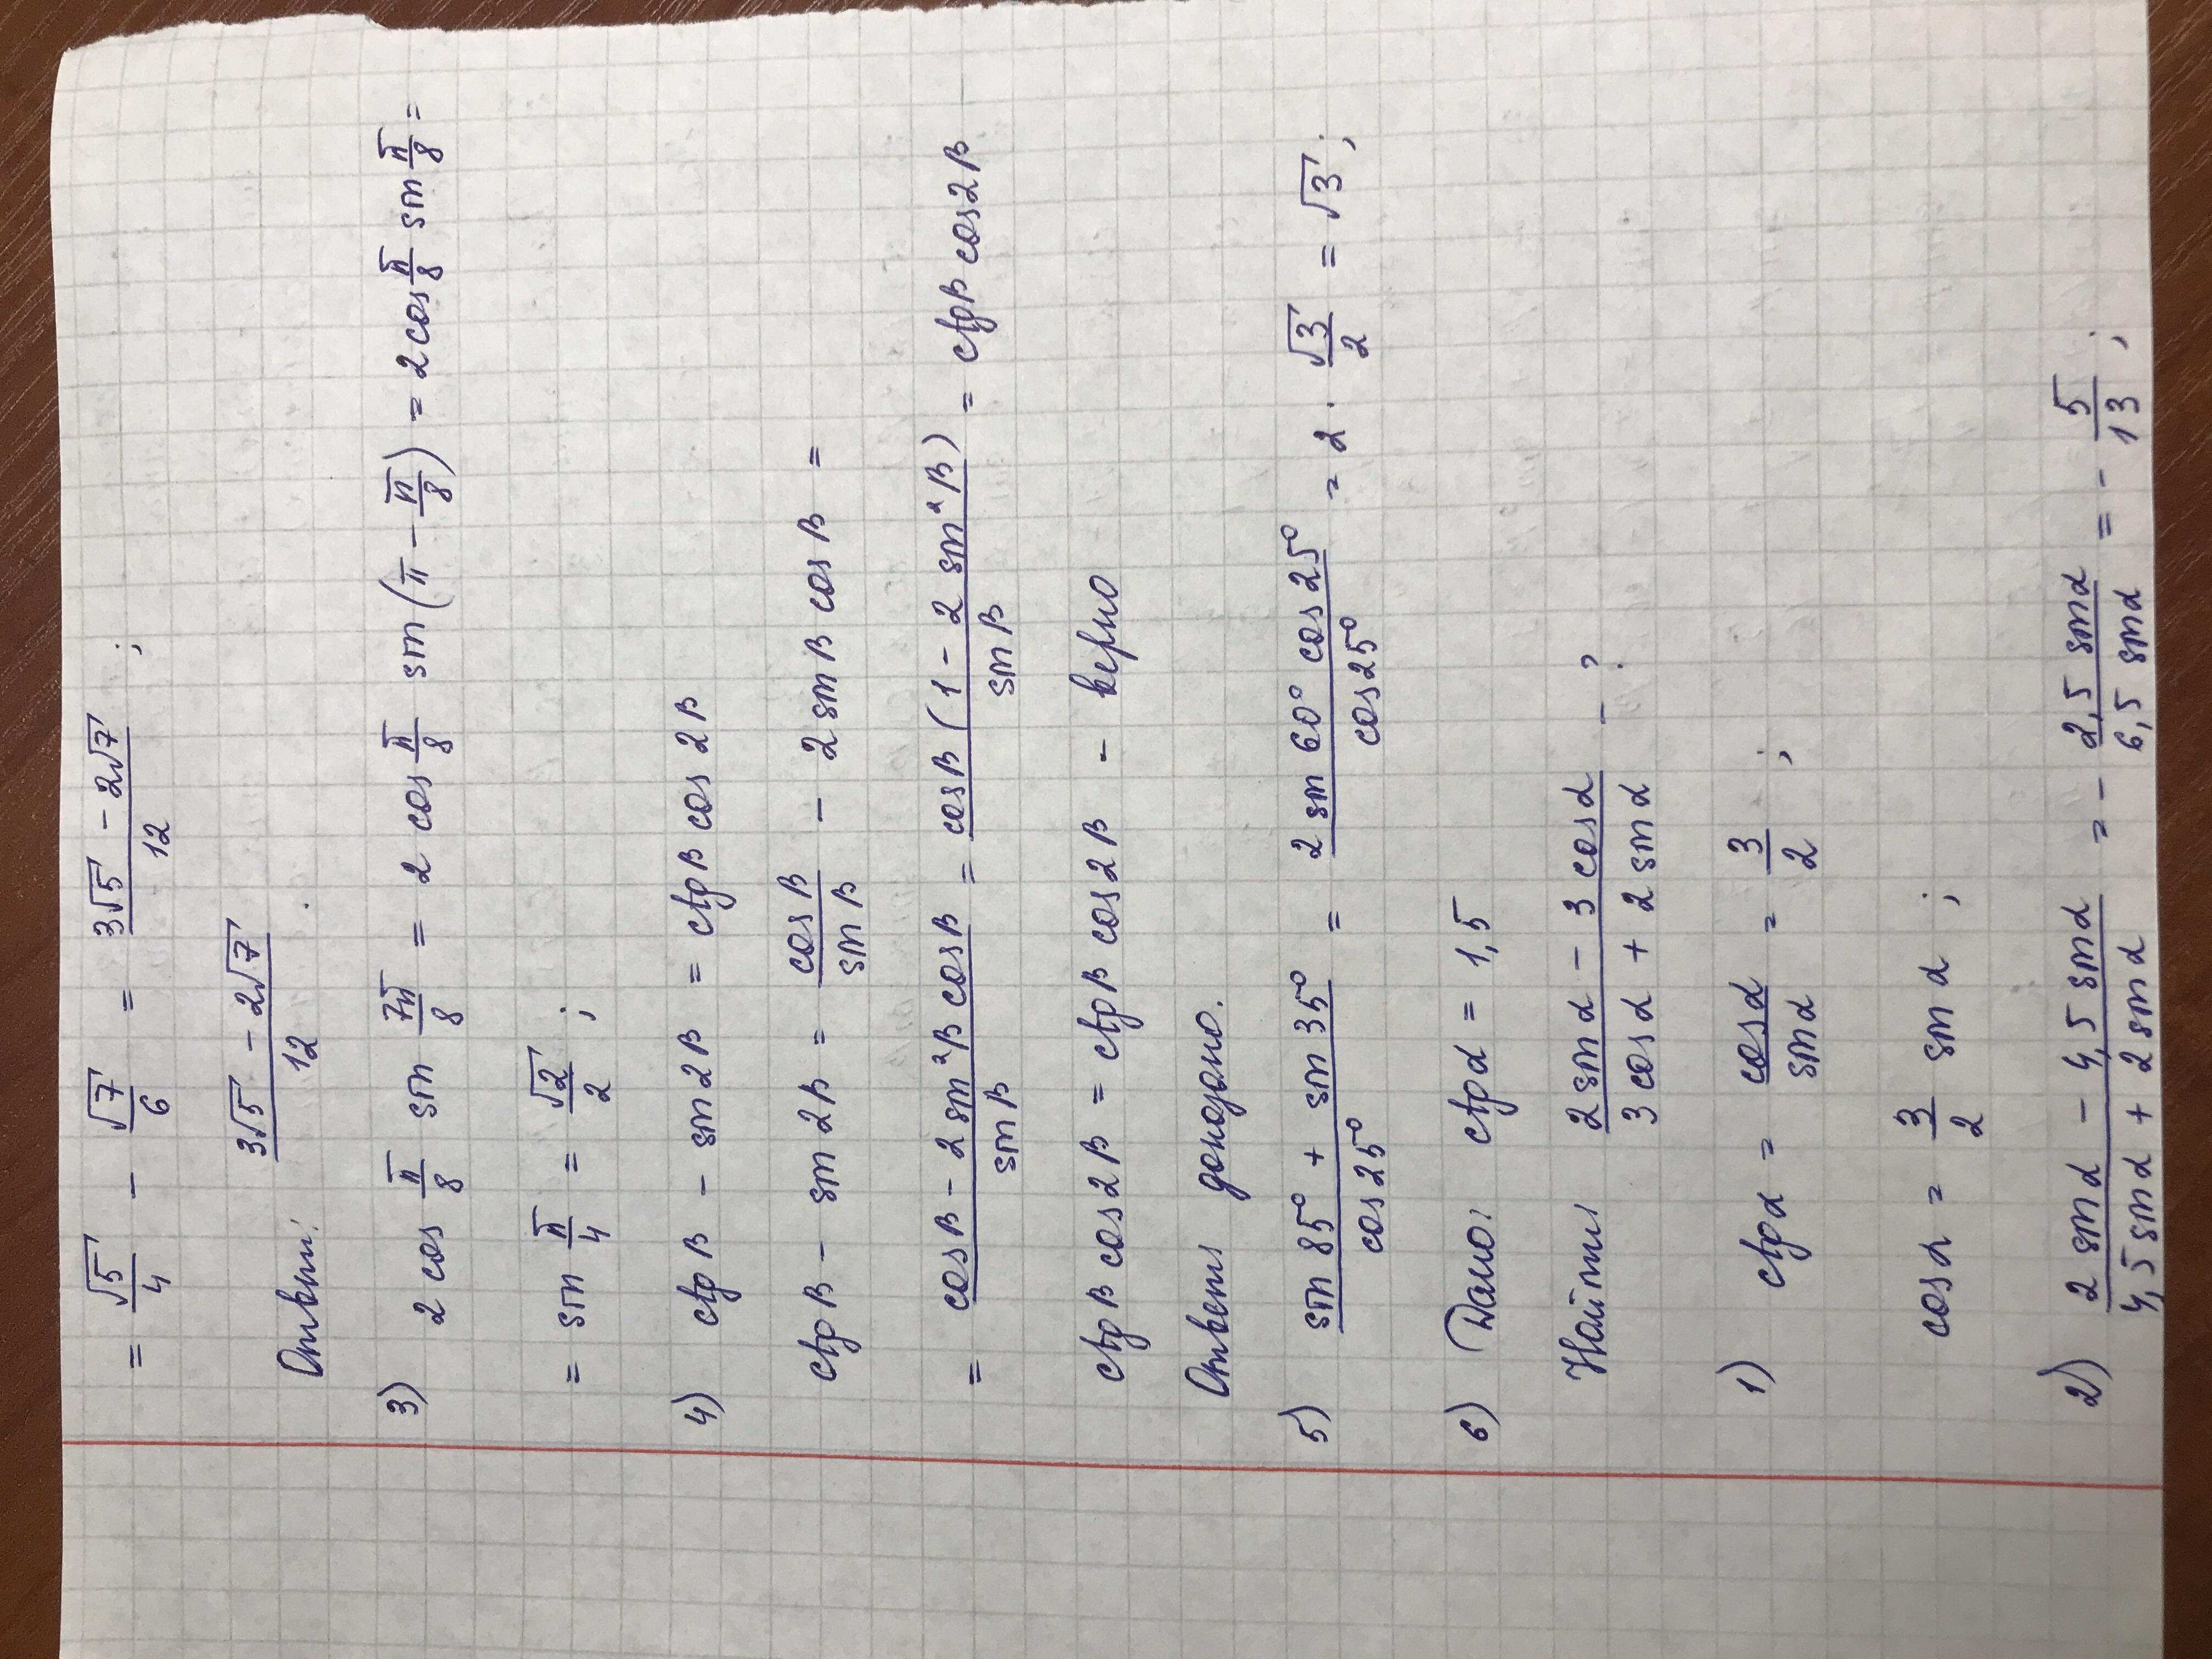 = √5/4 - √7/6 = (3√5 - 2√7)/12 ;
Ответ: (3√5 - 2√7)/12 .
3) 2 cos π/8 sin 7π/8 = 2 cos π/8 sin (π - π/8) = 2 cos π/8 sin π/8 =
= sin π/4 = √2/2 ;
4) ctg β - sin 2β = ctg β cos 2β
ctg β - sin 2β = cos β/sin β - 2 sin β cos β =
= (cos β - 2 sin²β cos β)/sin β = cos β (1 - 2 sin²β)/sin β = ctg β cos 2β
ctg β cos 2β = ctg β cos 2β - верно
Ответ доказано.
5) (sin 85° + sin 35°)/cos 25° = (2 sin 60° cos 25°)/cos 25° = 2 · √3/2 = √3 ;
6) Дано: ctg α = 1,5
Найти (2 sin α - 3 cos α)/(3 cos α + 2 sin α) - ?
1) ctg α = cos α/sin α = 3/2 ;
cos α = 3/2 sin α ;
2) (2 sin α - 4,5 sin α)/(4,5 sin α + 2 sin α) = - 2,5 sin α/6,5 sin α = - 5/13 ;